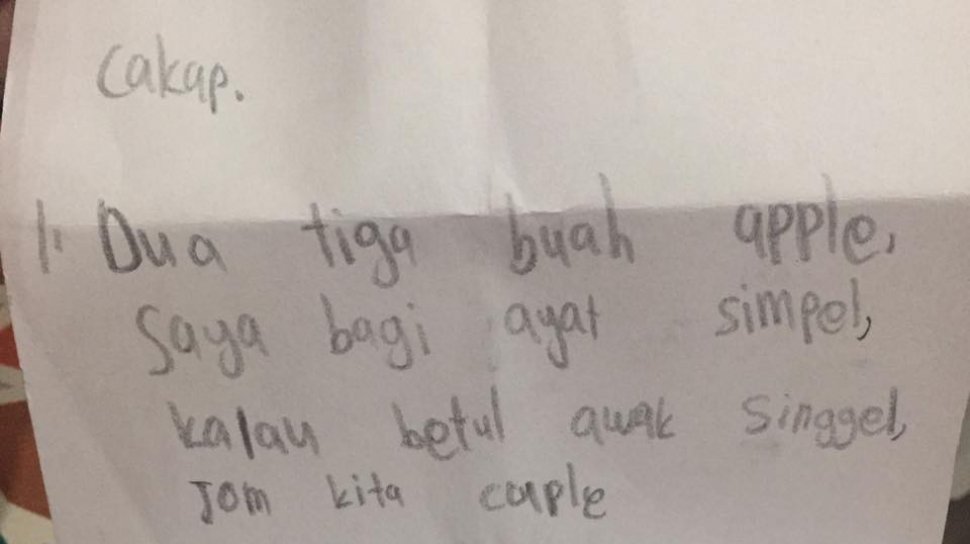 Cakap.
1. Dua tiga buah apple,
Saya bagi ayat simpel,
kalau betul awak singgel,
Jom kita couple